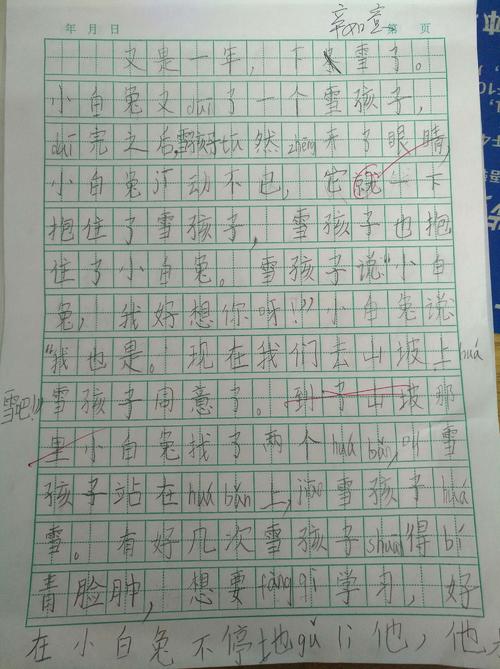 年 月 日 第 页
又是一年，下雪了。
小白兔又duī了一个雪孩子，
duī完之后,雪孩子tū然zhēng来了眼睛,
小白兔 动不已，它就一下
抱住了雪孩子，雪孩子也抱
住了小白兔。雪孩子说“小白
兔，我好想你呀!”小白兔说
“我也是。现在我们去山坡上huá
雪吧!”雪孩子同意了。到了山坡那
里小白兔找了两个huá bǎn,叫雪
孩子站在huá bǎn上, 雪孩子huá
雪。有好几次雪孩子shuāi得bí
青脸肿，想要fàng qì学习，好
在小白兔不停地gǔ lì他，他